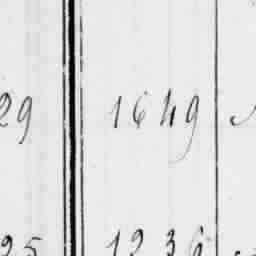 29 1649
25 1236